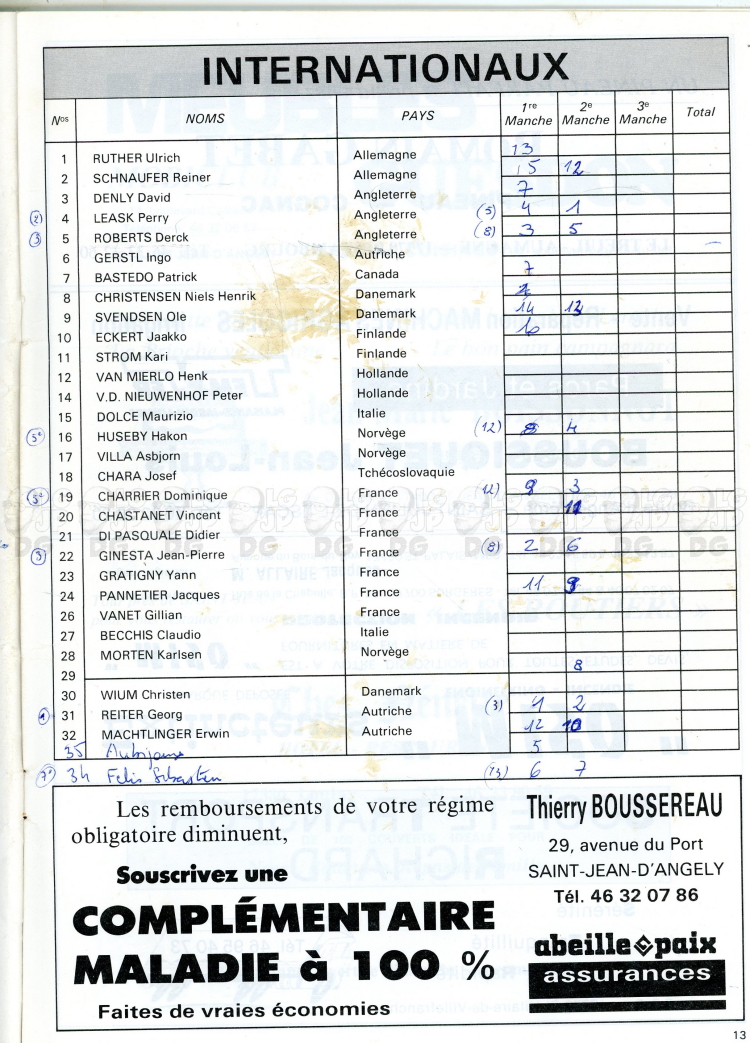 INTERNATIONAUX
Nos NOMS PAYS 1re Manche 2e Manche 3e Manche Total
1 RUTHER Ulrich Allemagne 13
2 SCHNAUFER Reiner Allemagne 5 12
3 DENLY David Angleterre 7
(2) 4 LEASK Perry Angleterre (5) 4 1
(3) 5 ROBERTS Derck Angleterre (8) 3 5
6 GERSTL Ingo Autriche
7 BASTEDO Patrick Canada 7
8 CHRISTENSEN Niels Henrik Danemark
9 SVENDSEN Ole Danemark 14 13
10 ECKERT Jaakko Finlande 10
11 STROM Kari Finlande
12 VAN MIERLO Henk Hollande
14 V.D. NIEUWENHOF Peter Hollande
15 DOLCE Maurizio Italie
(5e) 16 HUSEBY Hakon Norvège (12) 8 4
17 VILLA Asbjorn Norvège
18 CHARA Josef Tchécoslovaquie
(5e) 19 CHARRIER Dominique France (12) 9 3
20 CHASTANET Vincent France 11
21 DI PASQUALE Didier France
(3) 22 GINESTA Jean-Pierre France (8) 2 6
23 GRATIGNY Yann France
24 PANNETIER Jacques France 11 9
26 VANET Gillian France
27 BECCHIS Claudio Italie
28 MORTEN Karlsen Norvège
29 8
30 WIUM Christen Danemark
31 REITER Georg Autriche (3) 1 2
32 MACHTLINGER Erwin Autriche 12 10
35 5
34 (13) 6 7
Les remboursements de votre régime
obligatoire diminuent,
Souscrivez une
COMPLÉMENTAIRE
MALADIE à 100 %
Faites de vraies économies
Thierry BOUSSEREAU
29, avenue du Port
SAINT-JEAN-D'ANGELY
Tél. 46 32 07 86
abeille paix
assurances
13